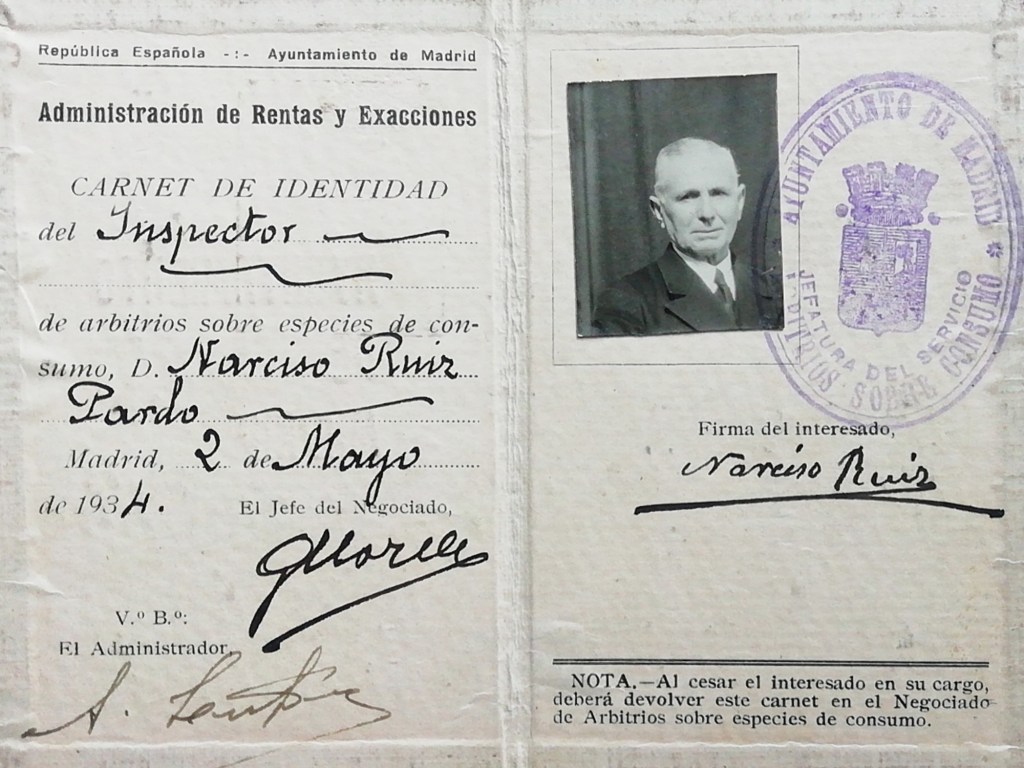 República Española -:- Ayuntamiento de Madrid
Administración de Rentas y Exacciones
CARNET DE IDENTIDAD
del Inspector
de arbitrios sobre especies de con-
sumo, D. Narciso Ruiz
Pardo
Madrid, 2 de Mayo
de 1934.
El Jefe del Negociado,
V.º B.º:
El Administrador,
AYUNTAMIENTO DE MADRID
ARBITRIOS SOBRE CONSUMO
JEFATURA DEL SERVICIO
Firma del interesado,
Narciso Ruiz
NOTA.—Al cesar el interesado en su cargo,
deberá devolver este carnet en el Negociado
de Arbitrios sobre especies de consumo.